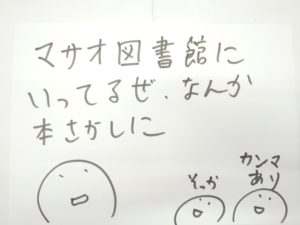 マサオ図書館に
いってるぜ、なんか
本さかしに
そっか
カンマ
あり